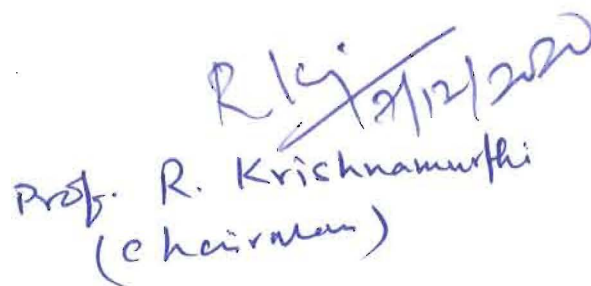 R Kj 7/12/2020
Prof. R. Krishnamurthi
(Chairman)